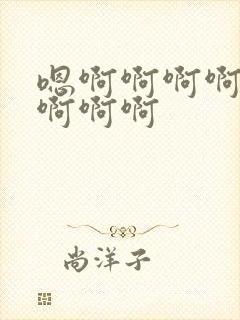 嗯啊啊啊啊
啊啊啊
尚洋子